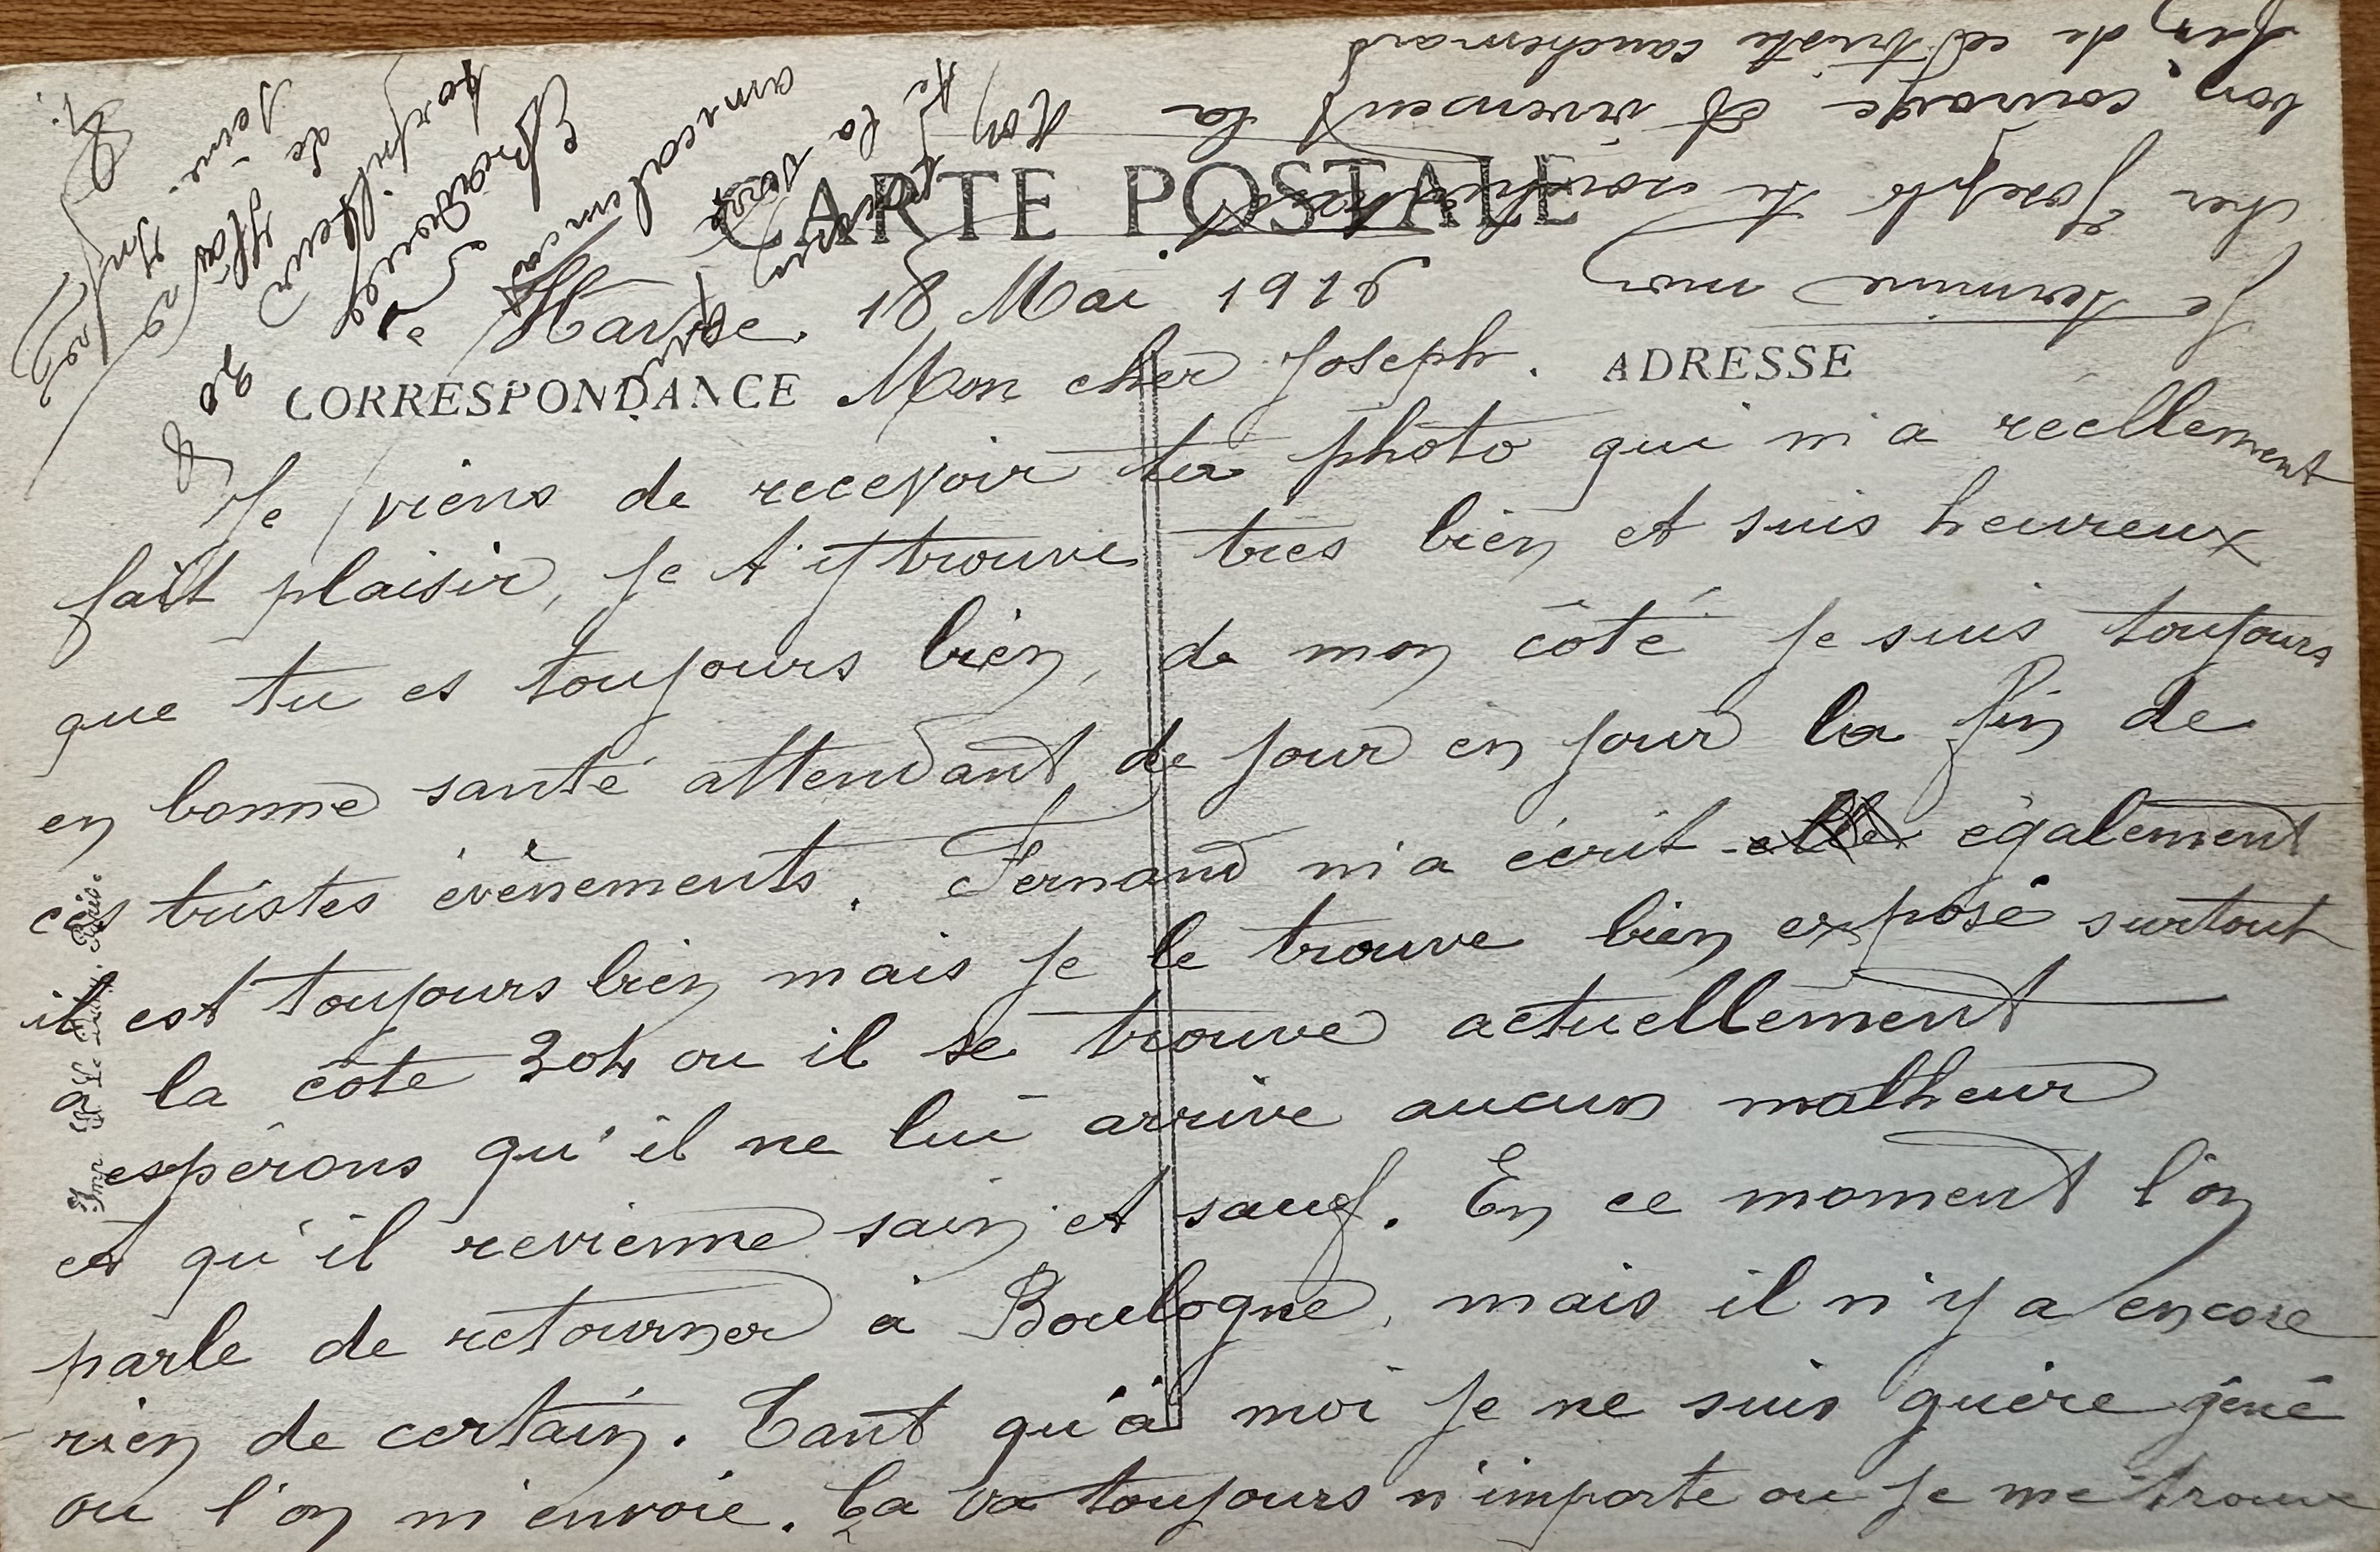 CARTE POSTALE
Havre. 18 Mai 1916
CORRESPONDANCE
Mon cher Joseph.
ADRESSE
Je viens de recevoir ta photo qui m'a réellement
fait plaisir, je t'y trouve très bien et suis heureux
que tu es toujours bien, de mon côté je suis toujours
en bonne santé attendant de jour en jour la fin de
ces tristes évènements. Fernand m'a écrit également
il est toujours bien mais je le trouve bien exposé surtout
à la côte 304 ou il se trouve actuellement
espérons qu'il ne lui arrive aucun malheur
et qu'il revienne sain et sauf. En ce moment l'on
parle de retourner à Boulogne, mais il n'y a encore
rien de certain. Tant qu'à moi je ne suis guère gêné
ou l'on m'envoie. Ça va toujours n'importe ou je me trouve
Je termine mon
cher Joseph te
bon courage et vivement la
fin de ce triste cauchemard
Ton
te
la
amicalement
Imp. Le Paris.